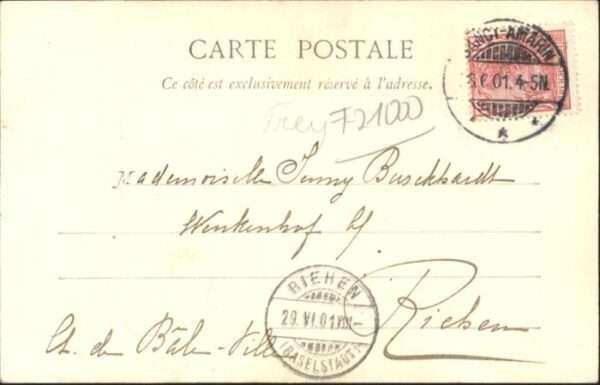 CARTE POSTALE
Ce côté est exclusivement réservé à l'adresse.
SANCT-AMARIN
6.01.4-5N.
Frey 721000
Mademoiselle Jenny Burckhardt
Wenkenhof b/
Riehen
Ct. de Bâle-Ville
RIEHEN
29.VI.01.VIII-
(BASELSTADT)